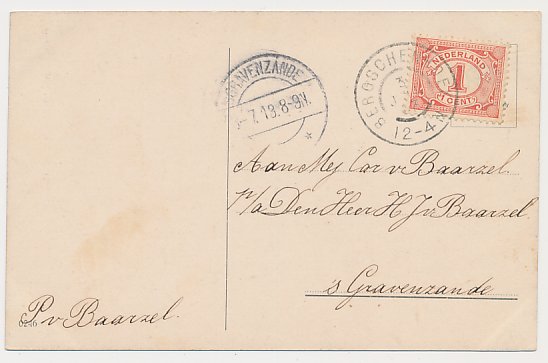 'S GRAVENZANDE
7.13.8-9V.
BERGSCHE
12-4
NEDERLAND
1
1 CENT
Aan Mej Cor v Baarzel.
p/a Den Heer H J v Baarzel
's Gravenzande
P v Baarzel.
0246